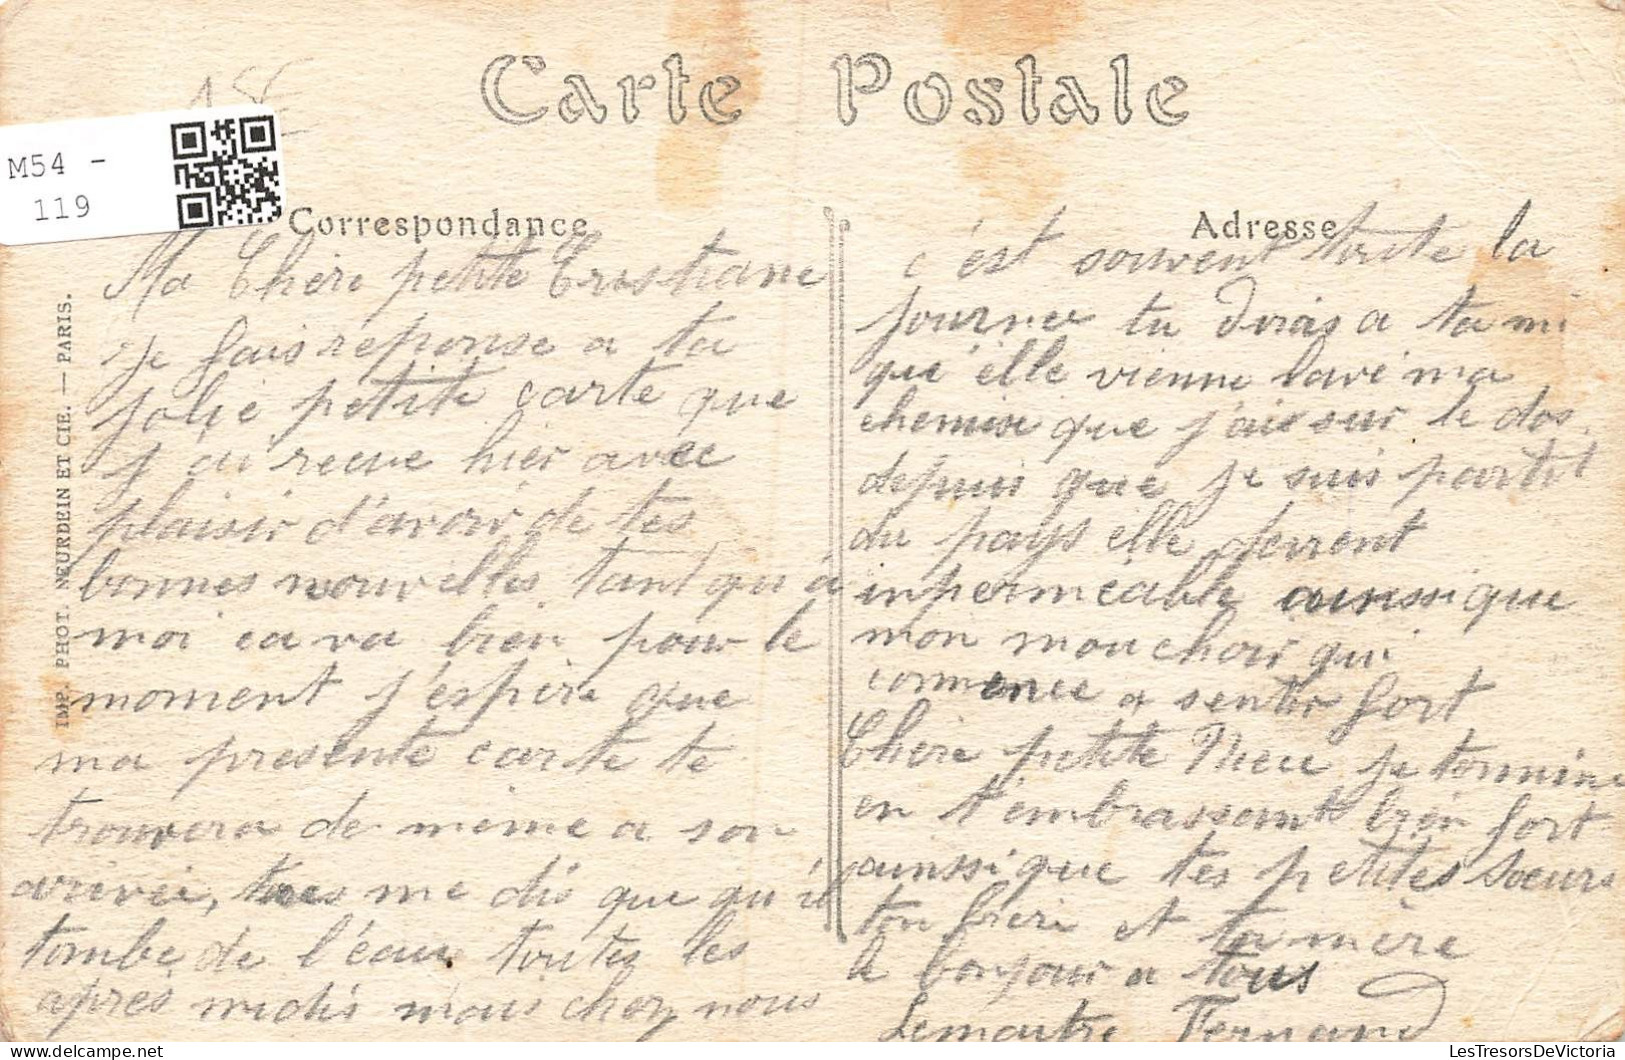 Carte Postale
18€
M54 -
119
Correspondance
Ma Chère petite Cristiane
je fais réponse a ta
jolie petite carte que
j'ai reçue hier avec
plaisir d'avoir de tes
bonnes nouvelles, tant qu'à
moi ca va bien pour le
moment j'espère que
ma presente carte te
trouvera de même a son
arivée, tu me dis que qu'il
tombe de l'eau toutes les
après midis mais chez nous
Adresse
c'est souvent toute la
journee tu dirais a ta mi
qu'elle vienne lavé ma
chemise que j'ai sur le dos
depuis que je suis partit
du pays elle devient
inpermeable ainssi que
mon mouchoir qui
commence a sentir fort
Chère petite Niece je termine
en t'embrassant bien fort
ainssi que tes petites Soeurs
ton frère et ta mère
le bonjour a tous
Lemaitre Fernand
IMP. PHOT. NEURDEIN ET CIE. — PARIS.
LesTresorsDeVictoria.com